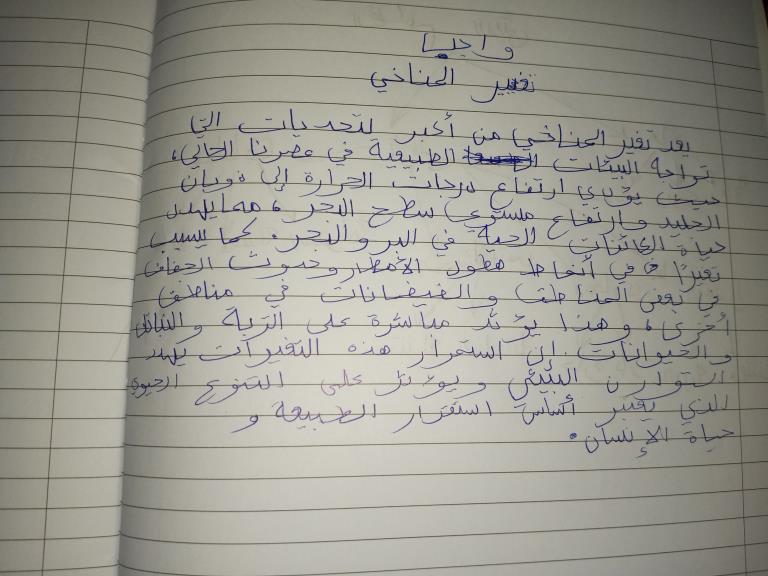 واجب
تغيير المناخي
يعد تغير المناخي من أكبر لتحديات التي
تواجه البيئات الطبيعية في عصرنا الحالي،
حيث يؤدي ارتفاع درجات الحرارة إلى ذوبان
الجليد وارتفاع مستوى سطح البحر، مما يهدد
حياة الكائنات الحية في البر والبحر. كما يسبب
تغيرًا في أنماط هطول الأمطار وحدوث الجفاف
في بعض المناطق والفيضانات في مناطق
أخرى، وهذا يؤثر مباشرة على التربة والنباتات
والحيوانات. إن استمرار هذه التغيرات يهدد
التوازن البيئي ويؤثر على التنوع الحيوي
الذي يعتبر أساس استقرار الطبيعة و
حياة الإنسان.